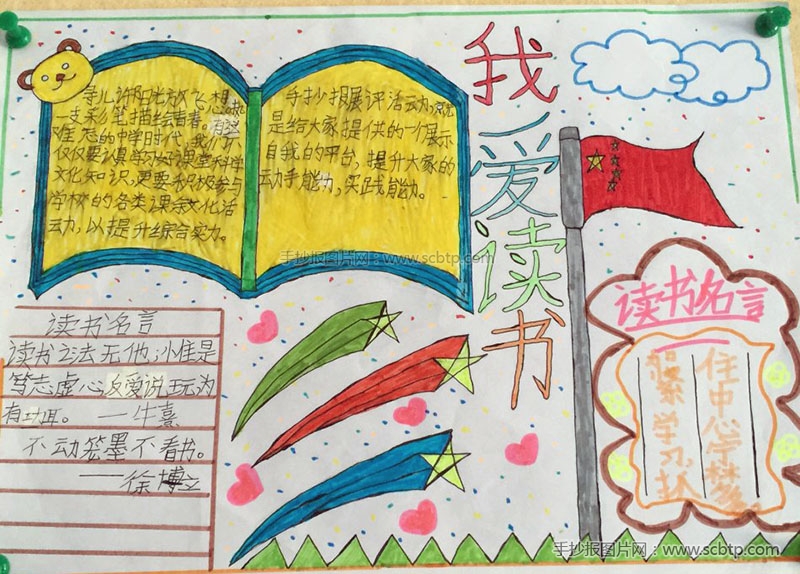 我爱读书
许阳光放飞
一支彩笔描绘青春。
难忘的中学时代,我们不
仅仅要认真学习好课堂科学
文化知识,更要积极参与
学校的各类课余文化活
动,以提升综合实力。
手抄报展评活动,
是给大家提供的一个展示
自我的平台,提升大家的
动手能力,实践能力。
手抄报图片网:www.scbtp.com
读书名言
读书之法无他,惟是
笃志虚心反爱说玩为
有功耳。 —牛熹
不动笔墨不看书。
——徐博立
读书名言
住中心
学习
手抄报图片网:www.scbtp.com